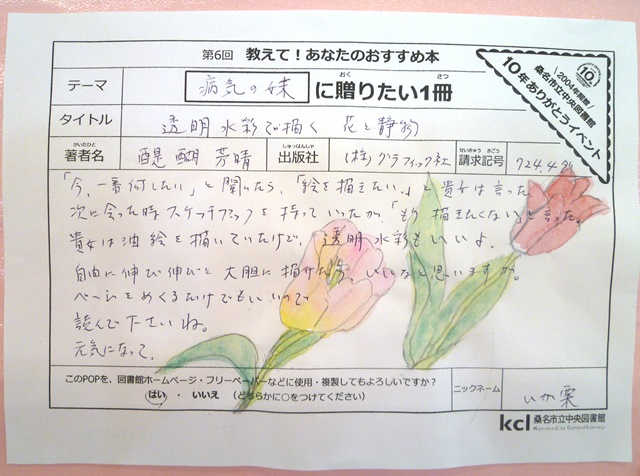 第6回 教えて!あなたのおすすめ本
テーマ 病気の妹 に贈りたい1冊
おく さつ
10年ありがとうイベント
2004年開館
桑名市立中央図書館
タイトル 透明水彩で描く 花と静物
かいたひと しゅっぱんしゃ せいきゅう きごう
著者名 醍醐芳晴 出版社 (株)グラフィック社 請求記号 724.4
「今、一番何したい」と聞いたら、「絵を描きたい。」と貴女は言った
次に会った時スケッチブックを持っていったが、「もう描きたくない」と言った。
貴女は油絵を描いていたけど、透明水彩もいいよ。
自由に伸び伸びと大胆に描けたら、いいなと思いますが。
ページをめくるだけでもいいので
読んで下さいね。
元気になって。
このPOPを、図書館ホームページ・フリーペーパーなどに使用・複製してもよろしいですか?
はい ・ いいえ (どちらかに○をつけてください)
ニックネーム いが栗
kcl 桑名市立中央図書館
Kuwana City Central Library